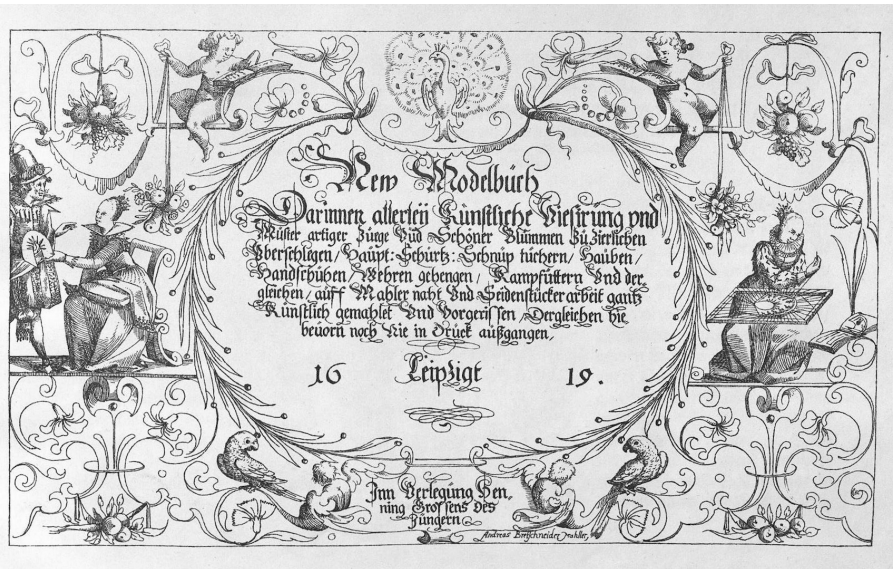 New Modelbüch
Darinnen allerleÿ Künstliche Viesirung vnd
Müster artiger Züge Vnd Schöner Blümmen Zü Zierlichen
Vberschlegen / Haüpt: Schürtz: Schnüp tüchern / Haüben /
Handschühen / Wehren gehengen / Kampfüttern Vnd der
gleichen / aüff Mahler naht Vnd Seidenstücker arbeit gantz
Künstlich gemahlet Vnd Vorgerissen / Dergleichen hie
beüorn noch Nie in Drück aüßgangen,
16 Leipzigt 19.
Inn Verlegüng Hen,
ning Grossens des
Jüngern
Andreas Bretschneider Mahller,